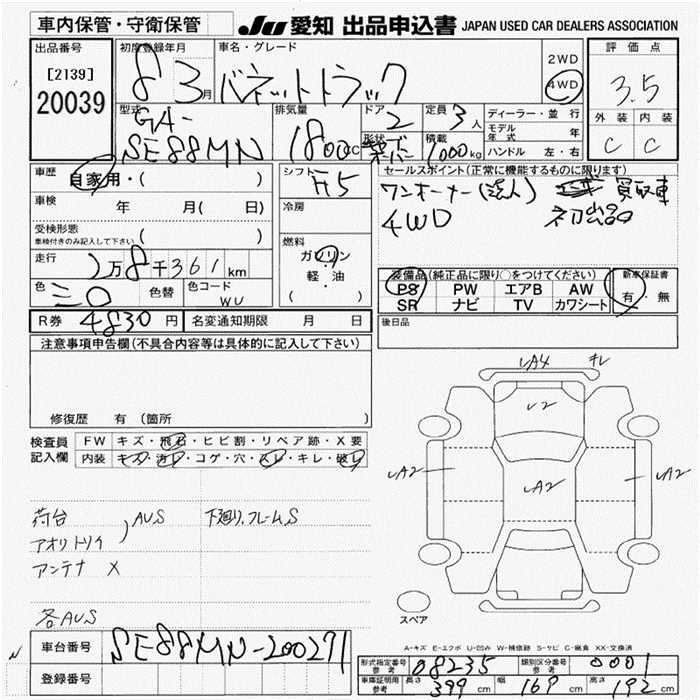 車内保管・守衛保管
JU 愛知 出品申込書 JAPAN USED CAR DEALERS ASSOCIATION
出品番号
[2139]
20039
初度登録年月
8 3月
車名・グレード
バネットトラック
2WD
4WD
評価点
3.5
外装 内装
C C
型式
GA-
SE88MN
排気量
1800cc
ドア
2
形状
定員
3人
積載
1000kg
ディーラー・並行
モデル年式 年
ハンドル 左・右
車歴
自家用・( )
車検 年 月( 日)
受検形態
車検付きのみ記入して下さい ( )
走行
万8千361km
色
色替
色コード
WU
シフト
F5
冷房
燃料
ガソリン
軽・油
( )
セールスポイント(正常に機能するものに限ります)
ワンオーナー(法人) 買取車
4WD 初出品
装備品(純正品に限り○をつけてください)
PS PW エアB AW
SR ナビ TV カワシート
新車保証書
有・無
後日品
R券 4830円
名変通知期限 月 日
注意事項申告欄(不具合内容等は具体的に記入して下さい)
修復歴 有 (箇所 )
検査員記入欄
FW キズ・飛石・ヒビ割・リペア跡・X要
内装 キズ・汚レ・コゲ・穴・スレ・キレ・破レ
荷台
アオリ トリイ
AUS
下廻り、フレームS
アンテナ X
各AUS
UA4
キレ
U2
UA2
UA2
UA2
UA2
スペア
A-キズ E-エクボ U-凹み W-補修跡 S-サビ C-腐食 XX-交換済
車台番号
SE88MN-200271
登録番号
形式指定番号参考
08235
類別区分番号参考
0001
車庫証明用参考
長さ 399cm
幅 169cm
高さ 192cm